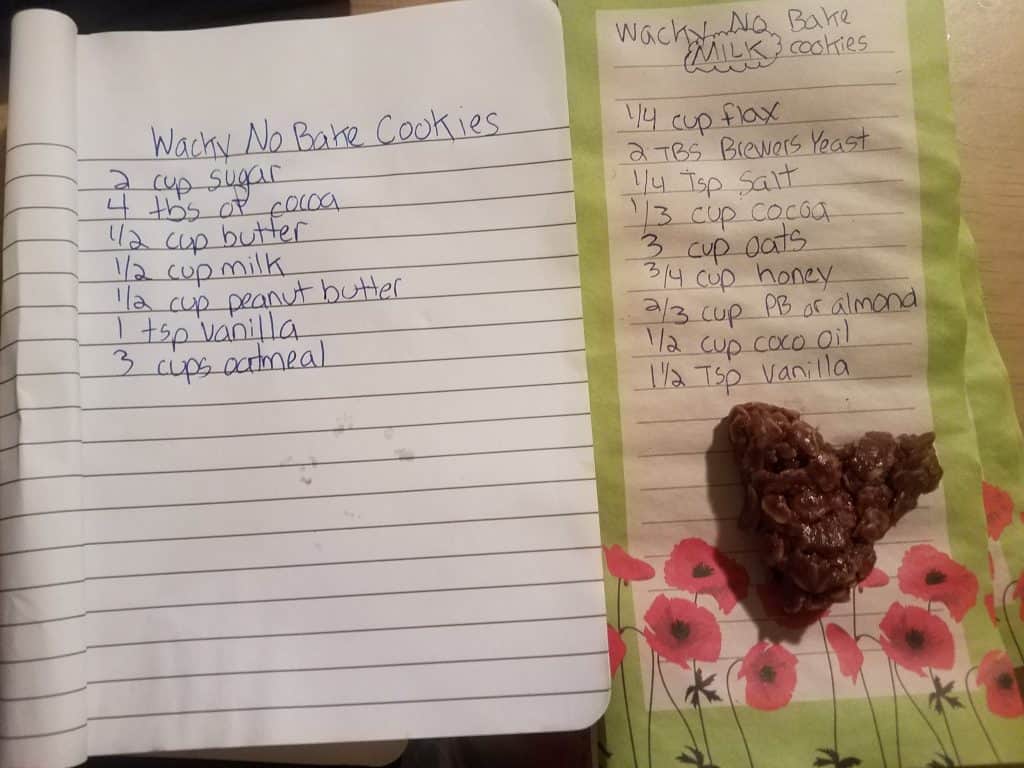 Wacky No Bake Cookies
2 cup sugar
4 tbs of cocoa
1/2 cup butter
1/2 cup milk
1/2 cup peanut butter
1 tsp vanilla
3 cups oatmeal
Wacky No Bake
MILK cookies
1/4 cup flax
2 TBS Brewers Yeast
1/4 Tsp Salt
1/3 cup cocoa
3 cup oats
3/4 cup honey
2/3 cup PB or almond
1/2 cup coco oil
1 1/2 Tsp vanilla